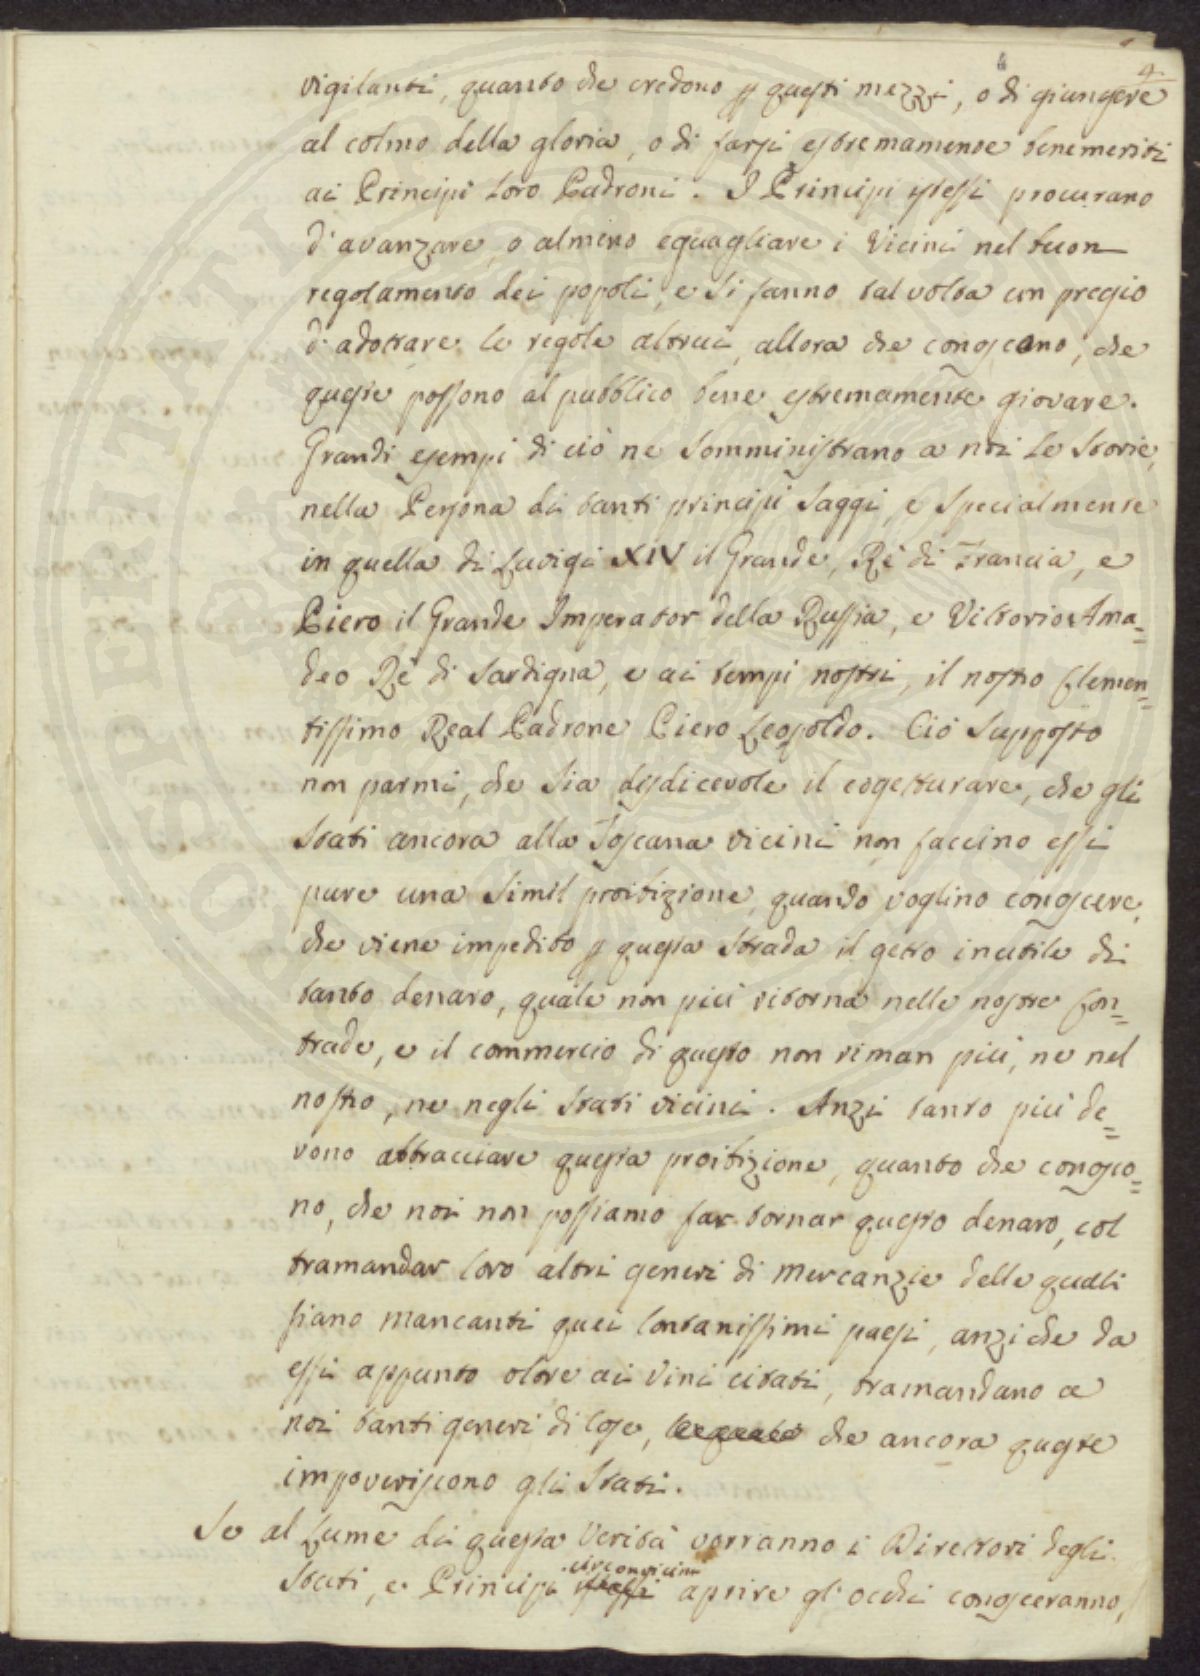 4.
vigilanti, quanto che credono p questi mezzi, o di giungere
al colmo della gloria, o di farsi estremamente benemeriti
ai Principi loro Padroni. I Principi istessi procurano
d'avanzare, o almeno eguagliare i Vicini nel buon
regolamento dei popoli, e si fanno tal volta un pregio
d'adottare le regole altrui, allora che conoscano, che
queste possono al pubblico bene estremamente giovare.
Grandi esempi di ciò ne somministrano a noi le Storie,
nella Persona di tanti principi saggi, e specialmente
in quella di Luvigi XIV il Grande, Rè di Francia, e
Piero il Grande Imperator della Russia, e Vittorio Ama=
deo Rè di Sardigna, e ai tempi nostri, il nostro Clemen=
tissimo Real Padrone Piero Leopoldo. Ciò supposto
non parmi, che sia disdicevole il cogetturare, che gli
Stati ancora alla Toscana vicini non faccino essi
pure una simil proibizione, quando voglino conoscere,
che viene impedito p questa strada il getto inutile di
tanto denaro, quale non più ritorna nelle nostre Con=
trade, e il commercio di questo non riman più, ne nel
nostro, ne negli Stati vicini. Anzi tanto più de=
vono abbracciare questa proibizione, quanto che conosco=
no, che noi non possiamo far tornar questo denaro, col
tramandar loro altri generi di Mercanzie delle quali
siano mancanti quei lontanissimi paesi, anzi che da
essi appunto oltre ai Vini citati, tramandano a
noi tanti generi di cose, che ancora queste
impoveriscono gli Stati.
Se al Lume di questa Verità vorranno i Direttori degli
Stati, e Principi circonvicini aprire gl'occhi conosceranno,